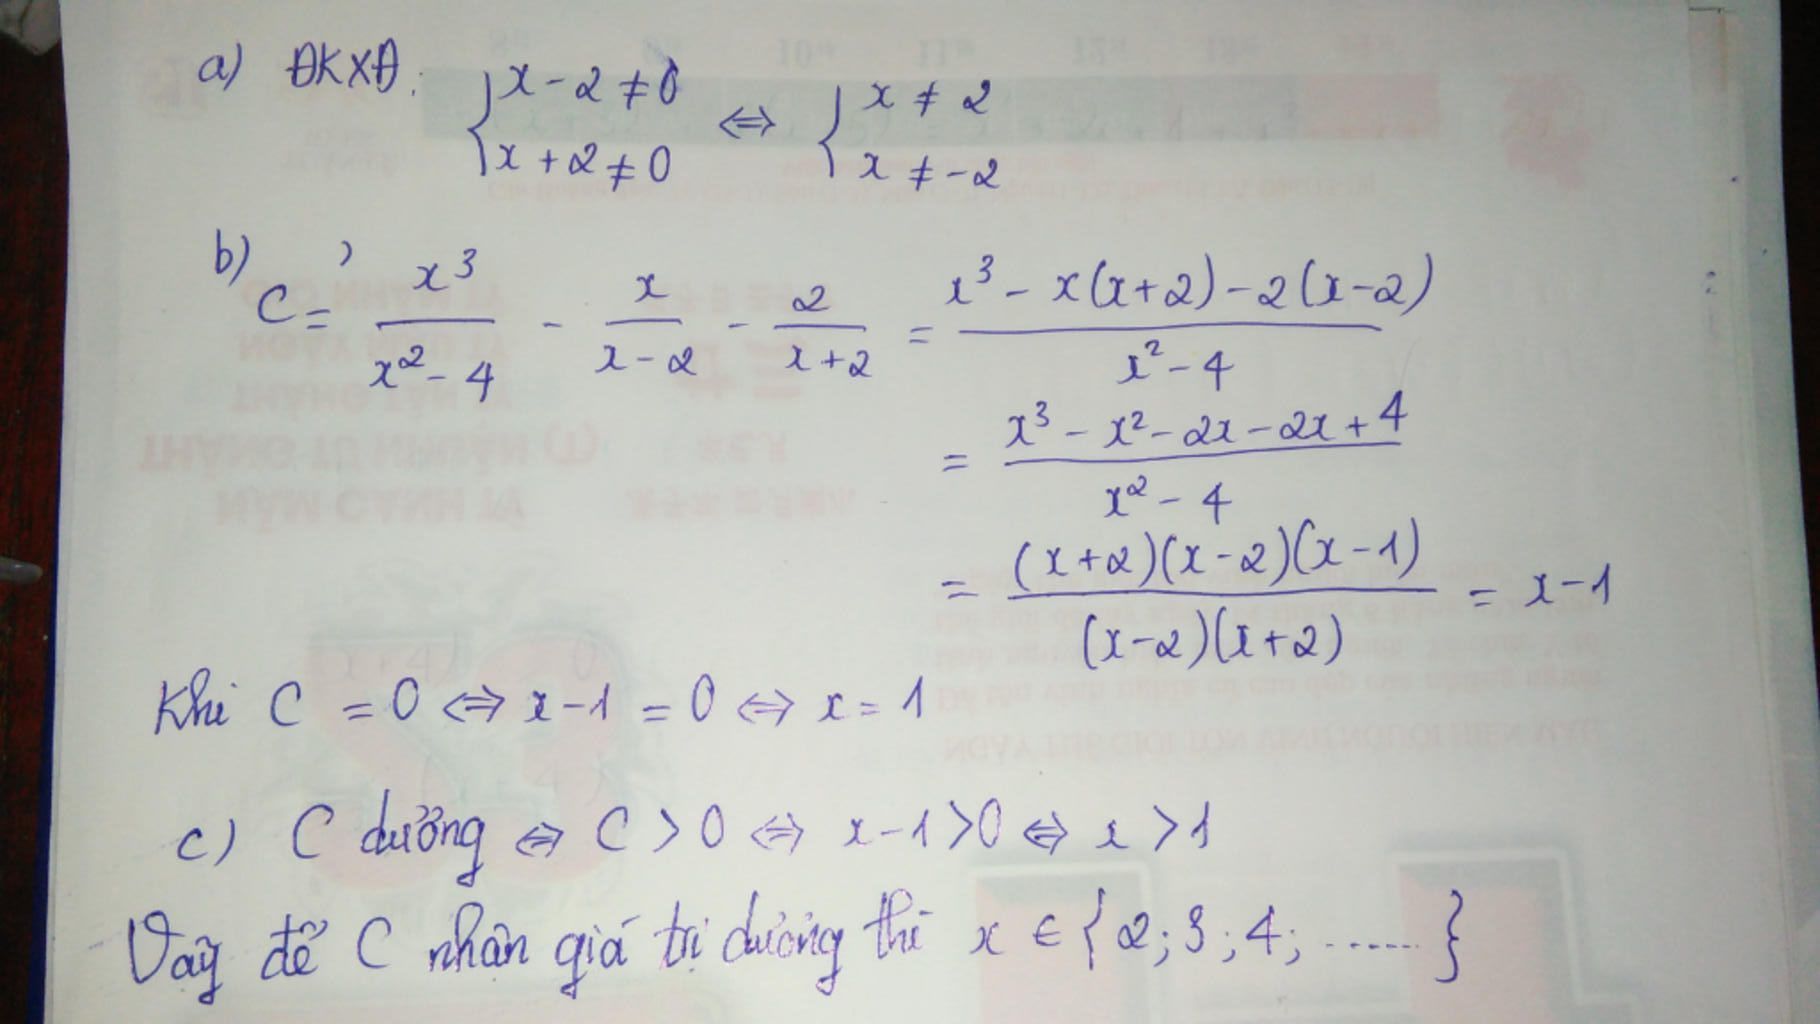 a) ĐKXĐ: { x - 2 ≠ 0 ⇔ { x ≠ 2
x + 2 ≠ 0 x ≠ -2
b) C = x³/(x² - 4) - x/(x - 2) - 2/(x + 2) = (x³ - x(x+2) - 2(x-2))/(x² - 4)
= (x³ - x² - 2x - 2x + 4)/(x² - 4)
= ((x+2)(x-2)(x-1))/((x-2)(x+2)) = x - 1
Khi C = 0 ⇔ x - 1 = 0 ⇔ x = 1
c) C dương ⇔ C > 0 ⇔ x - 1 > 0 ⇔ x > 1
Vậy để C nhận giá trị dương thì x ∈ { 2; 3; 4; ...... }